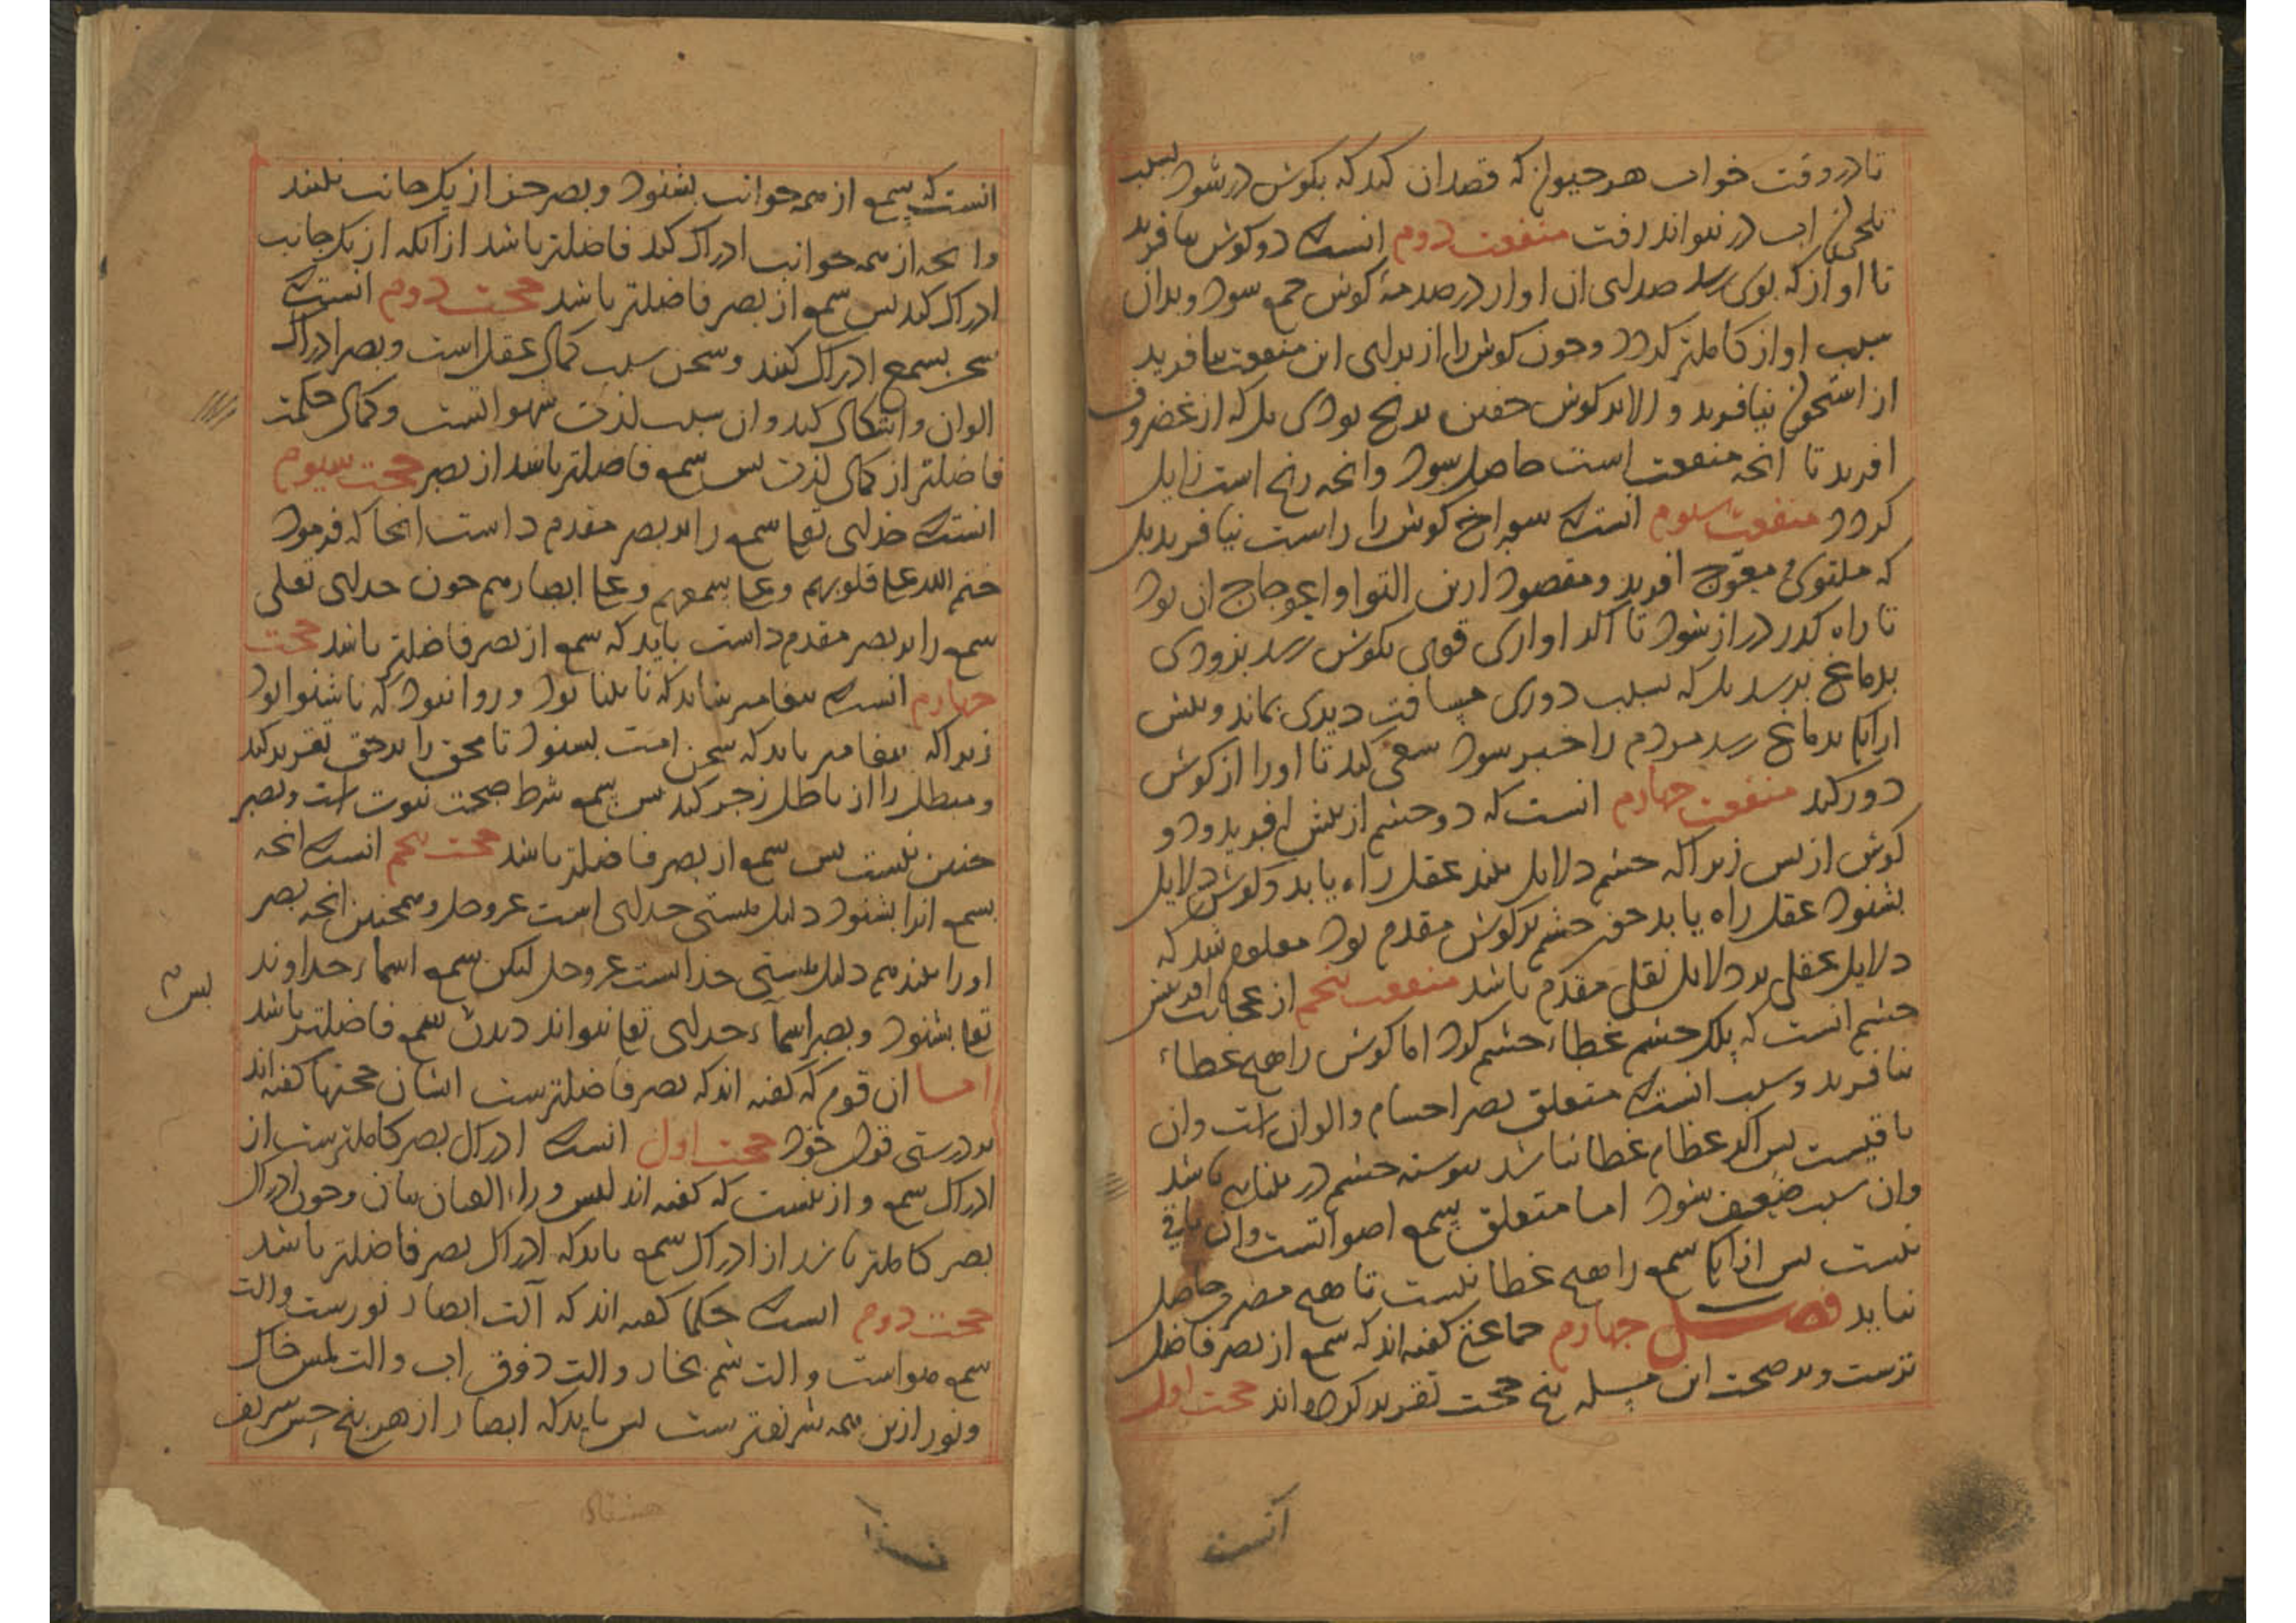 تا در وقت خواب هر حیوان که قصد ان کند که بکوش در شود بسبب
تلخی ان اب در نتواند رفت منفعت دوم انست که دو کوش بیافرید
تا اواز که بوی رسد صدای ان اواز در صدمهٔ کوش جمع شود و بدان
سبب اواز کاملتر کردد و چون کوش را از برای این منفعت بیافرید
از استخوان نیافرید و الا بر کوش خفتن برنج بودی بل که از غضروف
افرید تا انچه منفعت است حاصل شود و انچه رنج است زایل
کردد منفعت سیوم انست که سوراخ کوش را راست نیافرید بل
که ملتوی و معوج افرید و مقصود ازین التوا و اعوجاج ان بود
تا راه کذر دراز شود تا اکر اوازی قوی بکوش رسد بزودی
بدماغ نرسد بل که بسبب دوری مسافت دیری بماند و پیش
از انک بدماغ رسد مردم را خبر شود سعی کند تا او را از کوش
دور کند منفعت چهارم انست که دو چشم از پیش افرید و دو
کوش از پس زیرا که چشم دلایل بیند عقل راه یابد و کوش دلایل
بشنود عقل راه یابد چون چشم بر کوش مقدم بود معلوم شد که
دلایل عقلی بر دلایل نقلی مقدم باشد منفعت پنجم از عجایب افرینش
چشم انست که پلک چشم غطاء چشم کرد اما کوش را هیچ غطاء
نیافرید و سبب انست که متعلق بصر اجسام و الوان است و ان
باقیست پس اکر غطا نباشد پیوسته چشم در بینایی باشد
و ان سبب ضعیف شود اما متعلق سمع اصواتست و ان باقی
نیست پس از انک سمع را هیچ غطا نیست تا هیچ مضرت حاصل
نیاید فصل چهارم جماعتی کفته اند که سمع از بصر فاضل
ترست و بر صحت این مسله پنج حجت تقریر کرده اند حجت اول
انست
انست که سمع از همه جوانب بشنود و بصر جز از یک جانب نبیند
و انچه از همه جوانب ادراک کند فاضلتر باشد از انکه از یک جانب
ادراک کند پس سمع از بصر فاضلتر باشد حجت دوم انست که
سخن بسمع ادراک کنند و سخن سبب کمال عقل است و بصر ادراک
الوان و اشکال کند و ان سبب لذت شهواتست و کمال حکمت
فاضلتر از کمال لذت پس سمع فاضلتر باشد از بصر حجت سیوم
انست که خدای تعا سمع را بر بصر مقدم داست انجا که فرمود
ختم الله علی قلوبهم و علی سمعهم و علی ابصارهم چون خدای تعلی
سمع را بر بصر مقدم داست باید که سمع از بصر فاضلتر باشد حجت
چهارم انست که پیغامبر شاید که نابینا بود و روا نبود که ناشنوا بود
زیرا که پیغامبر باید که سخن امت بشنود تا محق را بر حق تقریر کند
و مبطل را از باطل زجر کند پس سمع شرط صحت نبوت است و بصر
چنین نیست پس سمع از بصر فاضلتر باشد حجت پنجم انست که انچه
بسمع انرا بشنود دلیل هستی خدای است عز وجل و همچنین انچه بصر
او را بیند هم دلیل هستی خداست عز وجل لیکن سمع اسماء خداوند
تعا بشنود و بصر اسماء خدای تعا نتواند دیدن سمع فاضلتر باشد
پس
اما ان قوم که کفته اند که بصر فاضلترست ایشان حجتها کفته اند
بر درستی قول خود حجت اول انست که ادراک بصر کاملترست از
ادراک سمع و از ینست که کفته اند لیس وراء العیان بیان و چون ادراک
بصر کاملتر باشد از ادراک سمع باید که ادراک بصر فاضلتر باشد
حجت دوم انست که حکما کفته اند که آلت ابصار نورست و الت
سمع هواست و الت شم بخار و الت ذوق اب و الت لمس خاک
و نور ازین همه شریفترست پس باید که ابصار از هر پنج حس شریف